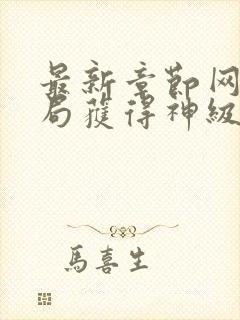 最新章節网
局獲得神級
馬喜生